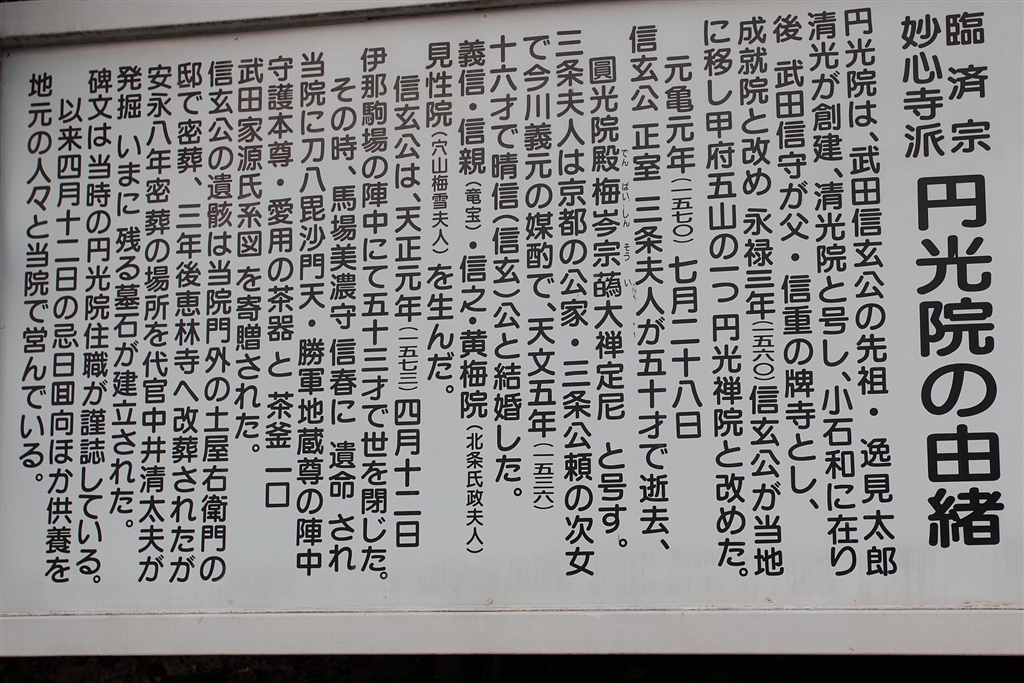 臨済宗
妙心寺派
円光院の由緒
円光院は、武田信玄公の先祖・逸見太郎
清光が創建、清光院と号し、小石和に在り
後 武田信守が父・信重の牌寺とし、
成就院と改め 永禄三年(一五六〇)信玄公が当地
に移し甲府五山の一つ円光禅院と改めた。
元亀元年(一五七〇)七月二十八日
信玄公 正室 三条夫人が五十才で逝去、
圓光院殿梅岑宗䔍大禅定尼 と号す。
でん ばいしん そう い
三条夫人は京都の公家・三条公頼の次女
で今川義元の媒酌で、天文五年(一五三六)
十六才で晴信(信玄)公と結婚した。
義信・信親(竜宝)・信之・黄梅院(北条氏政夫人)
見性院(穴山梅雪夫人)を生んだ。
信玄公は、天正元年(一五七三)四月十二日
伊那駒場の陣中にて五十三才で世を閉じた。
その時、馬場美濃守 信春に 遺命 され
当院に刀八毘沙門天・勝軍地蔵尊の陣中
守護本尊・愛用の茶器 と 茶釜 一口
武田家源氏系図 を寄贈された。
信玄公の遺骸は当院門外の土屋右衛門の
邸で密葬、三年後恵林寺へ改葬されたが
安永八年密葬の場所を代官中井清太夫が
発掘 いまに 残る墓石が建立された。
碑文は当時の円光院住職が謹誌している。
以来四月十二日の忌日回向ほか供養を
地元の人々と当院で営んでいる。